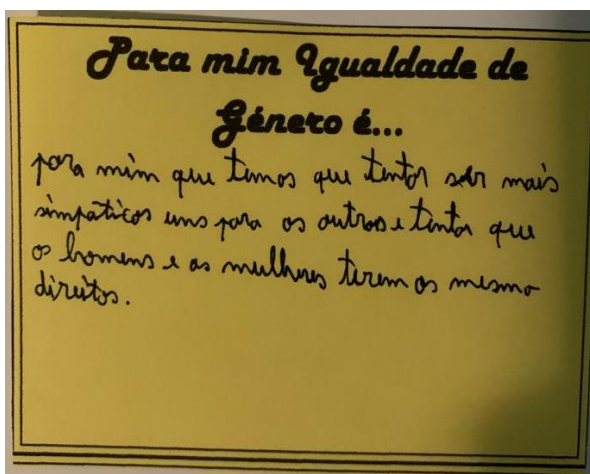 Para mim Igualdade de
Género é...
para mim que temos que tentar ser mais
simpáticos uns para os outros e tentar que
os homens e as mulheres terem os mesmo
direitos.